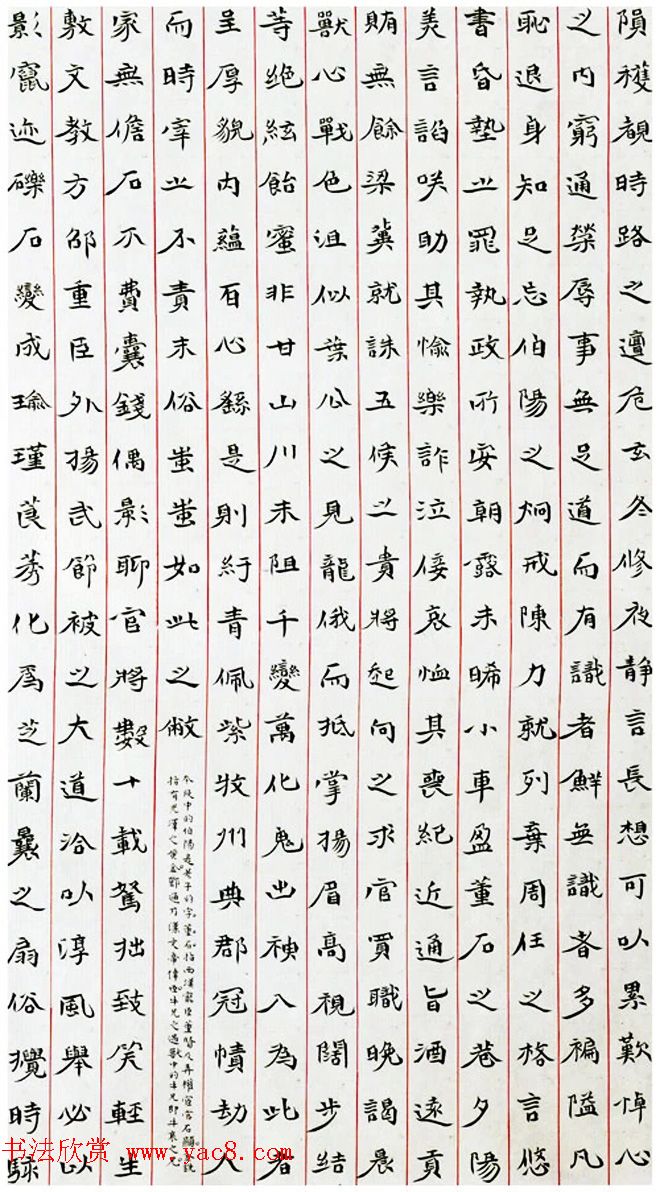 隕穫觀時路之邅危玄冬修夜静言長想可以累歎悼心
之内窮通榮辱事無足道而有識者鮮無識者多褊隘凡
恥退身知足忘伯陽之炯戒陳力就列棄周任之格言悠
書昏墊之罪執政所安朝露未晞小車盈董石之巷夕陽
美言諂咲助其愉樂詐泣佞哀恤其喪紀近通旨酒遠貢
賄無餘梁冀就誅五侯之貴將起向之求官買職晚謁晨
獸心戰色沮似葉公之見龍俄而抵掌揚眉高視闊步結
等绝絃飴蜜非甘山川未阻千變萬化鬼出神入為此者
呈厚貌内蕴百心繇是則紆青佩紫牧州典郡冠幘劫人
而時宰之不責末俗蚩蚩如此之敝
本段中的伯陽是老子的字董石指西漢寵臣董賢及弄權宦官石顯
家無儋石不費囊錢偶影聊官將數十載駑拙致笑輕生
敷文教方邵重臣外揚武節被之大道洽以淳風舉必以
影竄迹礫石變成瑜瑾莨莠化為芝蘭曩之扇俗攪時駭
书法欣赏 www.yac8.com